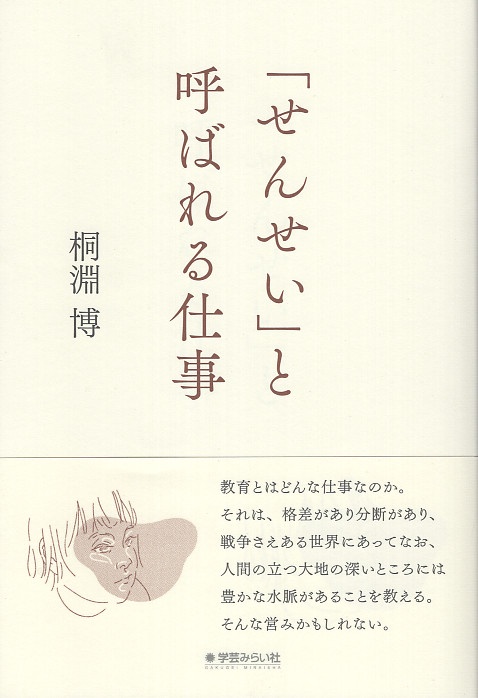 「せんせい」と
呼ばれる仕事
桐淵 博
教育とはどんな仕事なのか。
それは、格差があり分断があり、
戦争さえある世界にあってなお、
人間の立つ大地の深いところには
豊かな水脈があることを教える。
そんな営みかもしれない。
学芸みらい社
GAKUGEI MIRAISHA